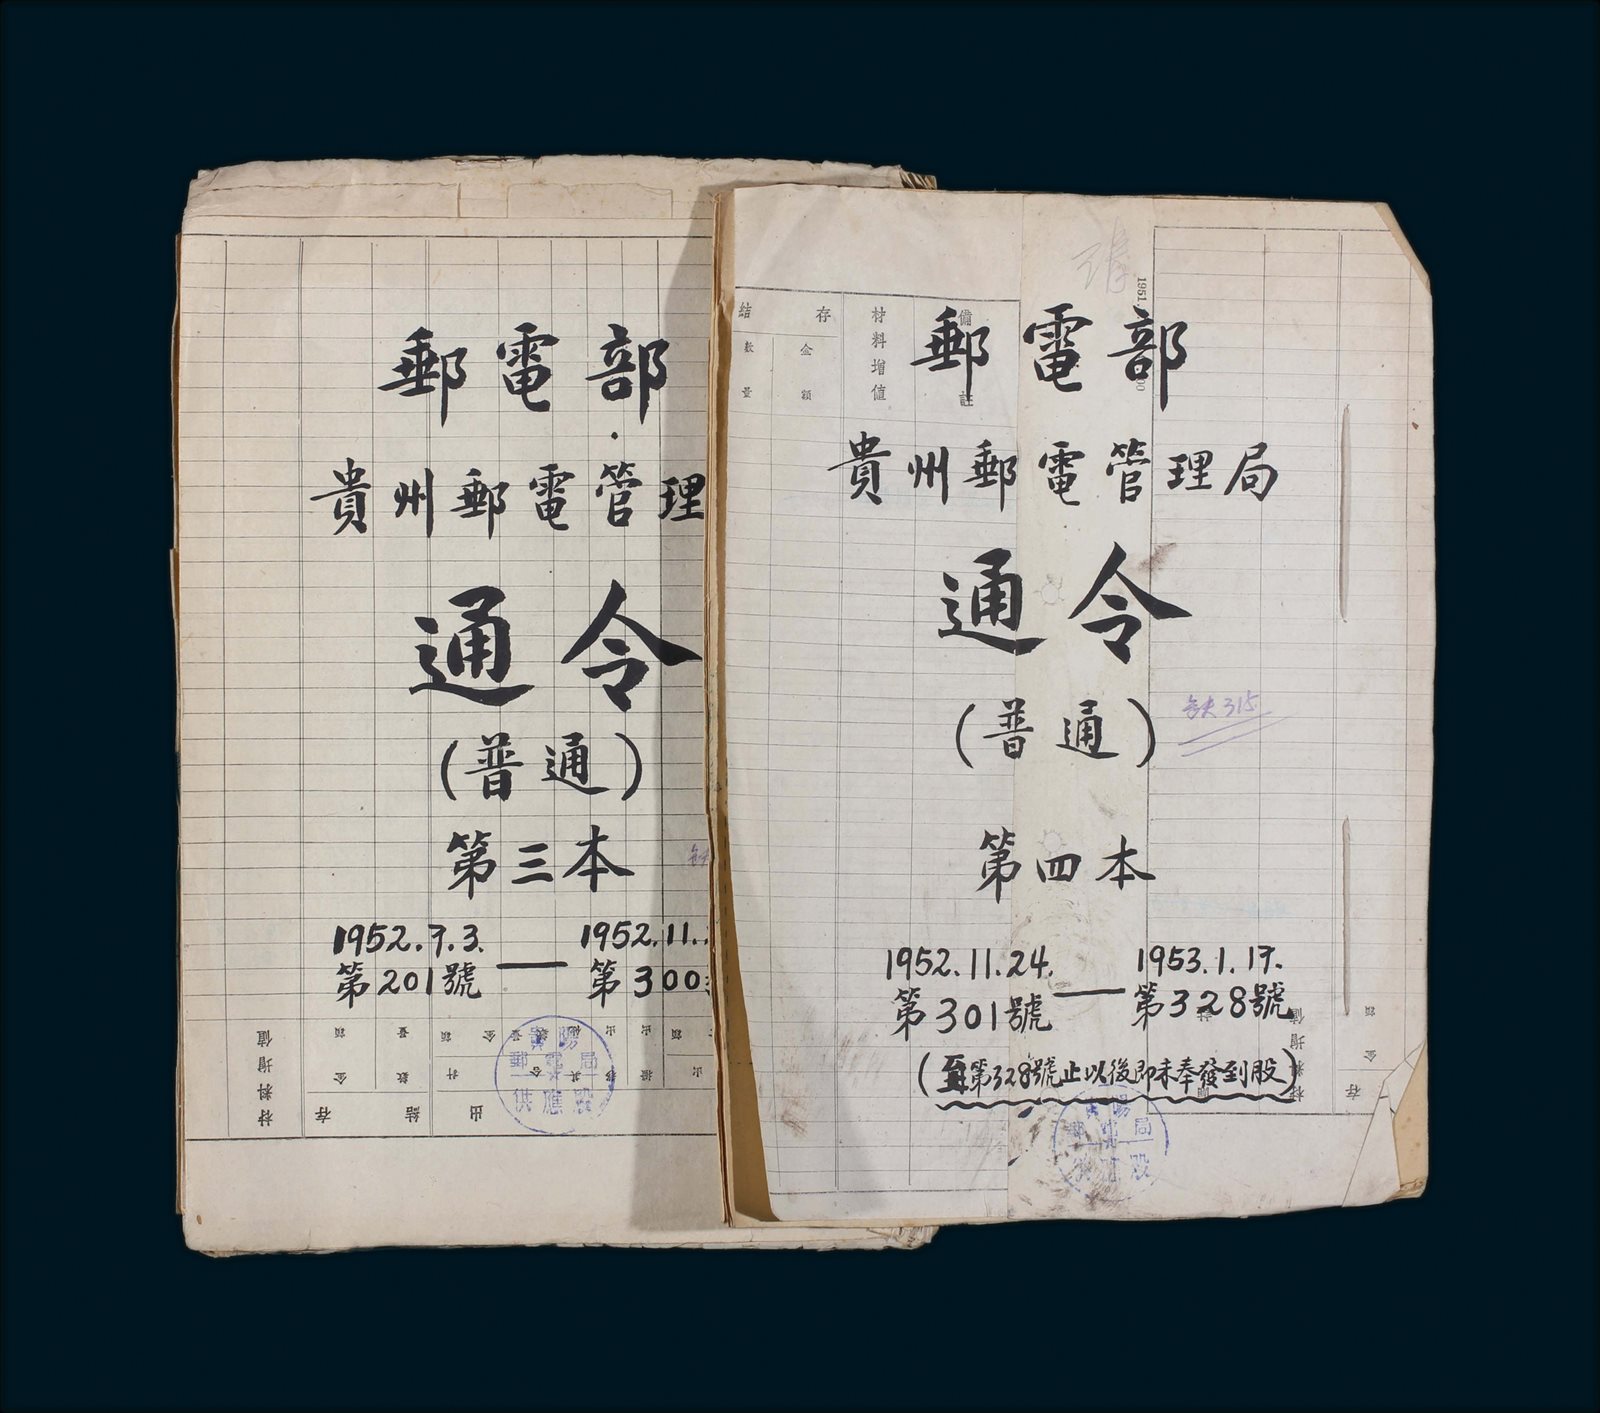 郵電部
貴州郵電管理
通令
(普通)
第三本
1952.7.3. — 1952.11.
第201號 第300
貴陽
郵電局
供應股
材料增值
存
金額
結
數量
出
1951.
結存
數量
金額
材料增值
備註
郵電部
貴州郵電管理局
通令
(普通)
缺315
第四本
1952.11.24. — 1953.1.17.
第301號 第328號
(至第328號止以後即未奉發到股)
局
股
材料增值
存
金額